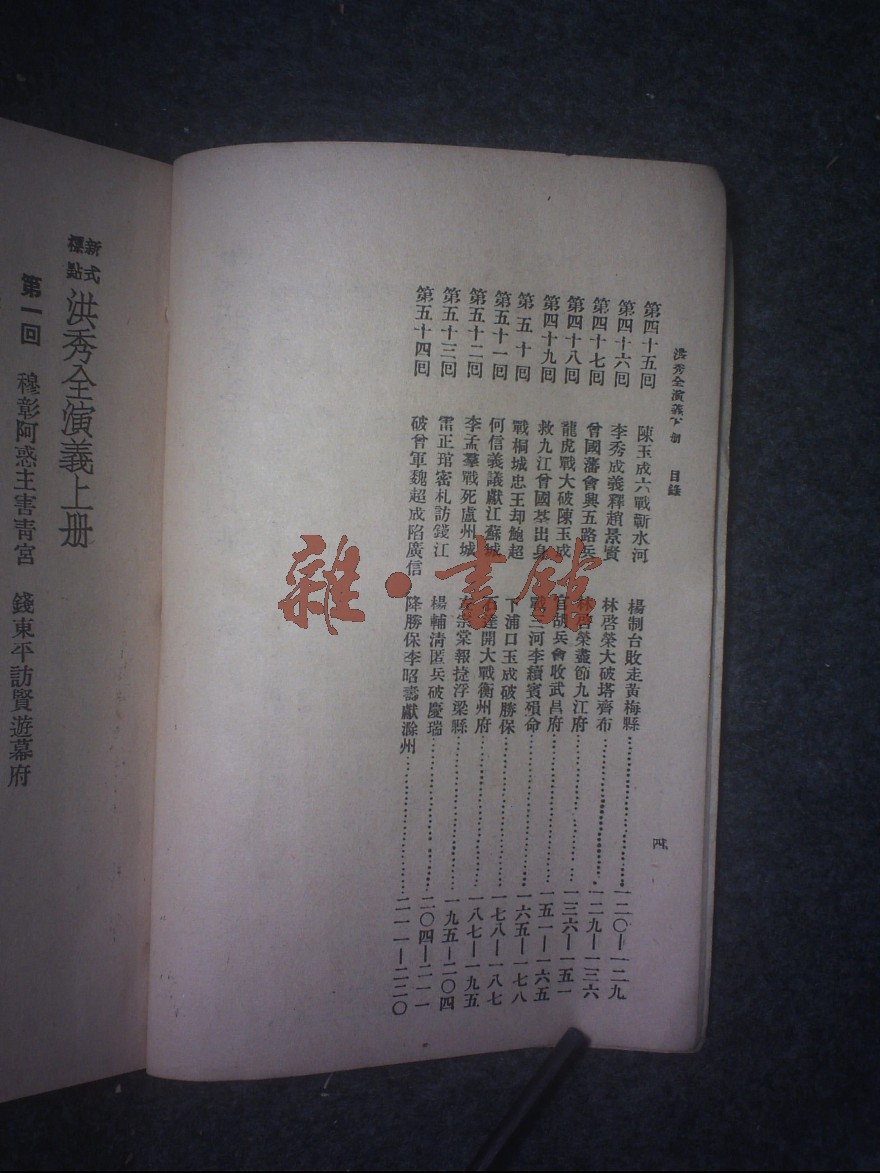 洪秀全演義下册 目錄 四
第四十五回 陳玉成六戰蘄水河 楊制台敗走黃梅縣 一二〇—一二九
第四十六回 李秀成義釋趙景賢 林啓榮大破塔齊布 一二九—一三六
第四十七回 曾國藩會興五路兵 林啓榮盡節九江府 一三六—一五一
第四十八回 龍虎戰大破陳玉成 官胡兵會收武昌府 一五一—一六五
第四十九回 救九江曾國荃出身 戰三河李續賓殞命 一六五—一七八
第五十回 戰桐城忠王却鮑超 下浦口玉成破勝保 一七八—一八七
第五十一回 何信義議獻江蘇城 石達開大戰衡州府 一八七—一九五
第五十二回 李孟羣戰死盧州城 左宗棠報捷浮梁縣 一九五—二〇四
第五十三回 雷正琯密札訪錢江 楊輔清匿兵破慶瑞 二〇四—二一一
第五十四回 破曾軍魏超成陷廣信 降勝保李昭壽獻滁州 二一一—二二〇
新式標點 洪秀全演義上册
第一回 穆彰阿惑主害青宮 錢東平訪賢遊幕府
雜·書館